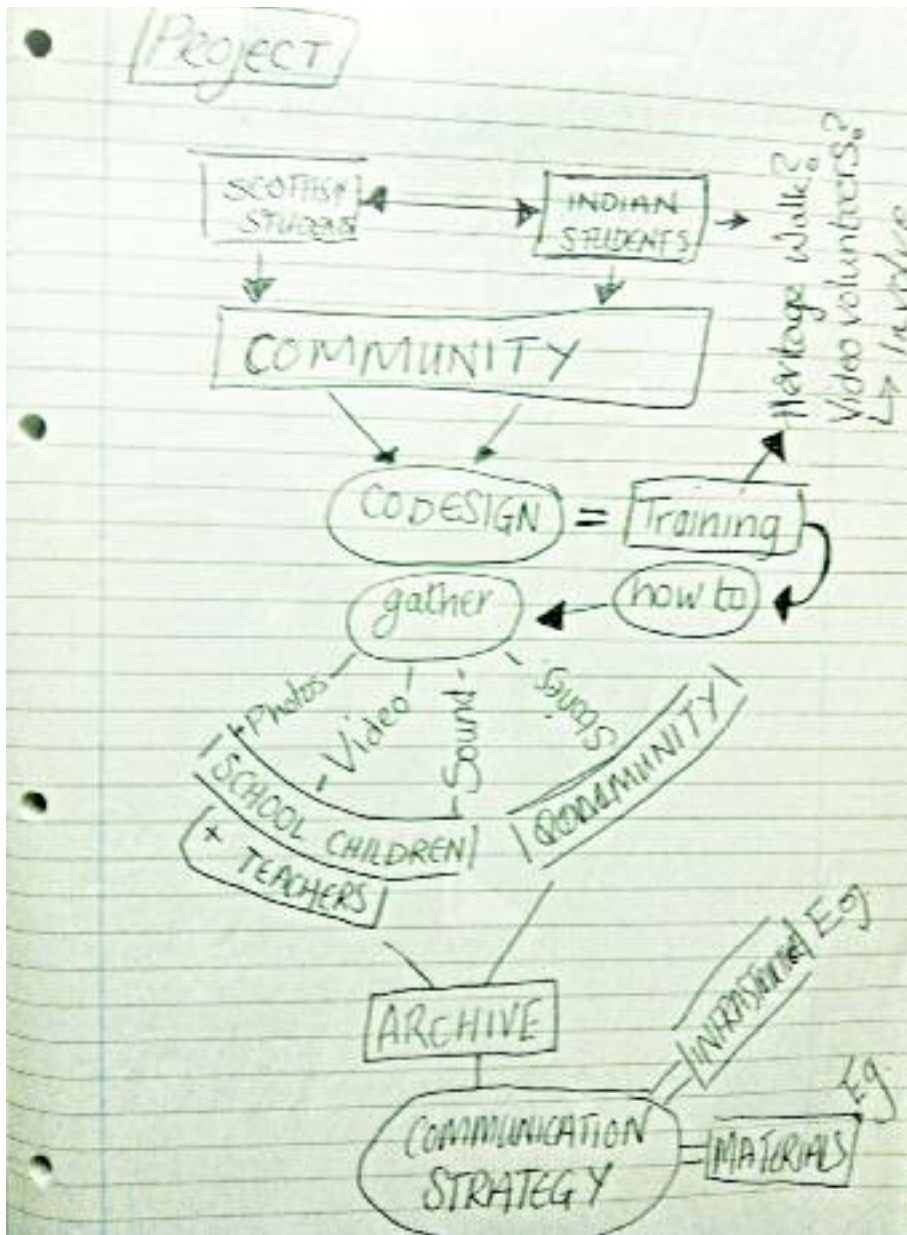 PROJECT
SCOTTISH
STUDENTS
INDIAN
STUDENTS
Heritage Walk?
Video volunteers?
↳ Involve
COMMUNITY
CODESIGN = Training
gather
how to
Photos
Video
Sound
Stories
SCHOOL CHILDREN
+ TEACHERS
COMMUNITY
ARCHIVE
INFRASTRUCTURE Eg
COMMUNICATION
STRATEGY
= MATERIALS Eg.